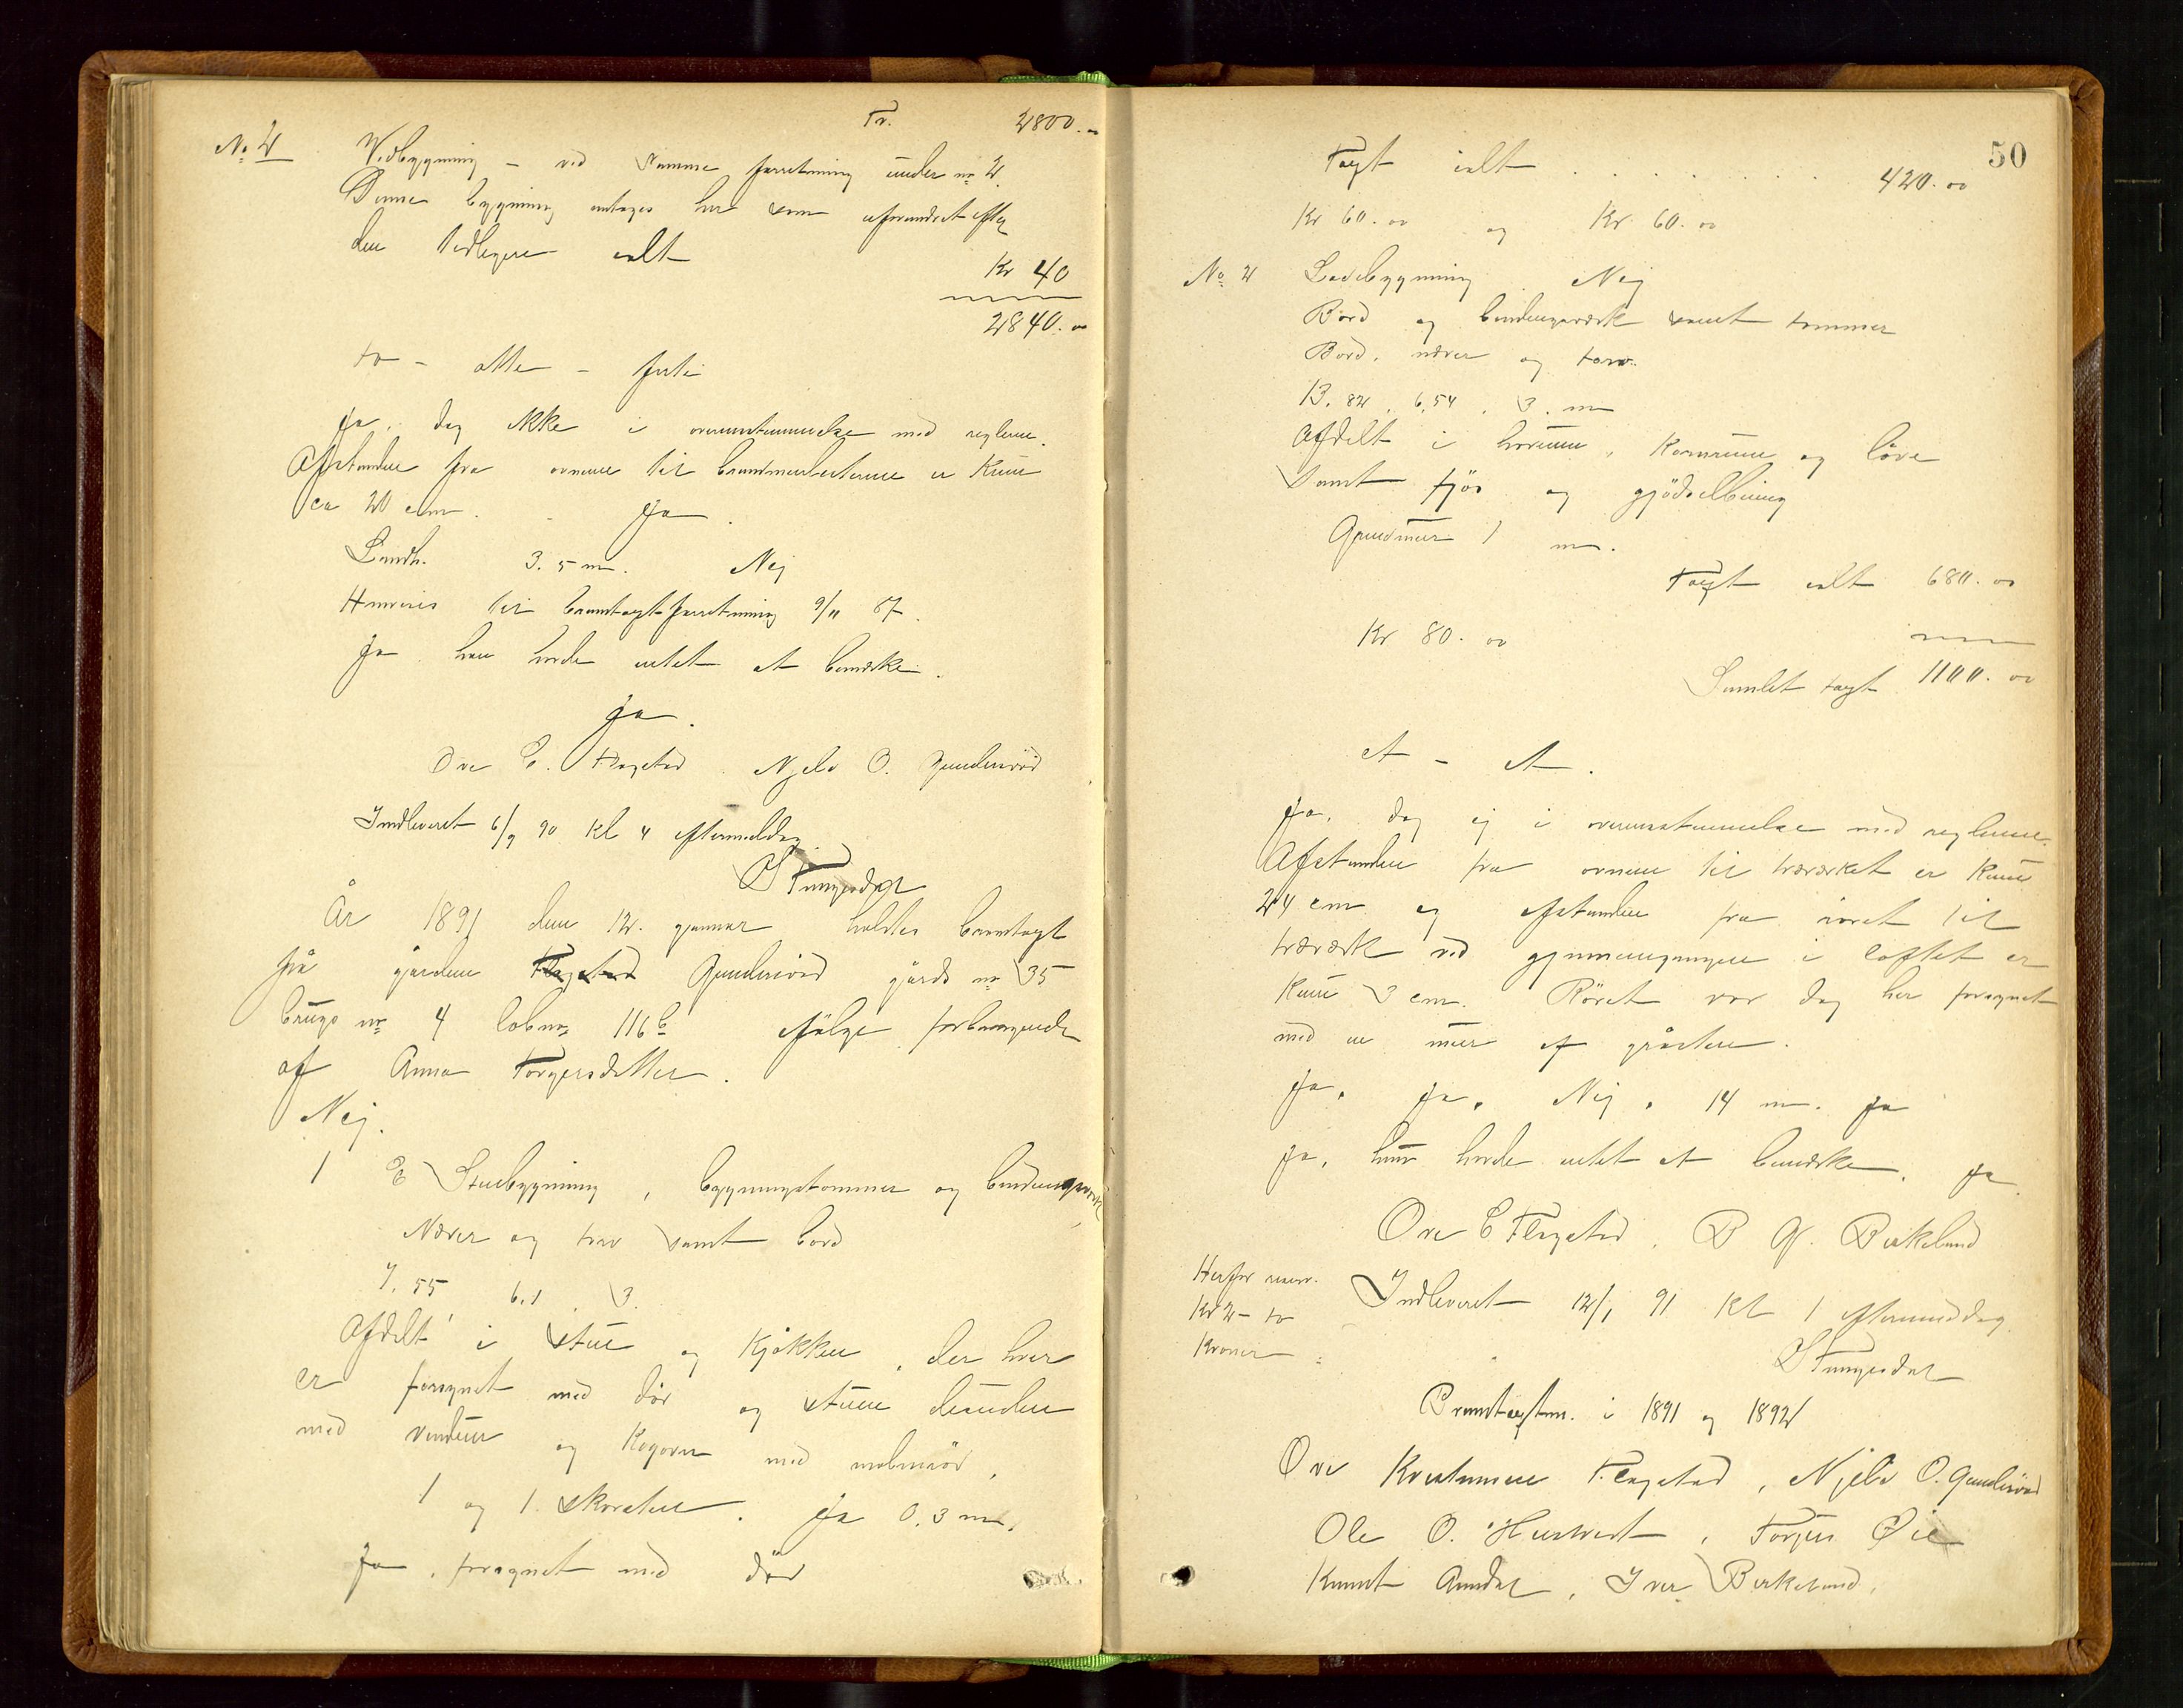 Tr. 2800.00
No 2 Vedbygning – ved samme forretning under no 2.
Denne bygning antages her som uforandret efter
den tidligere ialt
Kr 40
2840.00
to – otte – firti
Ja, dog ikke i overensstemmelse med reglerne.
Afstanden fra ovnene til brandmurene er kun
ca 20 cm. Ja.
Landh. 3.5 m. Nej
Henvises til brandtagstforretning 9/11 87.
Ja han havde intet at bemærke.
Ja.
Ove E. Flagstad Njeld O. Gundersröd
Indleveret 6/9 90 Kl 4 eftermiddag
S Tungesdal
År 1891 den 12. januar holdtes brandtagt
på gården Flagstad Gundersröd gårds no 35
brugs no 4 løbno 116b ifölge forlangende
af Anna Torgersdatter.
Nej.
1 E Stuebygning, bygningstømmer og bindingsværk
Næver og torv samt bord
7.55 6.1 . 3.
Afdelt i stue og kjøkken, der hver
er forsynet med dør og stuen desuden
med vinduer og kogovn med malmrör,
1 og 1. skorsten. Ja 0.3 m.
Ja, forsynet med dør
50
Tagt ialt . . . . . . . 420.00
Kr 60.00 og Kr 60.00
No 2 Ladebygning. Nej
Bord og bindingsværk samt tømmer
Bord, næver og torv.
13.82, 6,54, 3. m
Afdelt i høirum, kornrum og låve
samt fjøs og gjödselbinng
Grundmur 1 m.
Tagt ialt 680.00
Kr 80.00
Samlet tagt 1100.00
et – et.
Ja, dog ej i overensstemmelse med reglerne.
Afstanden fra ovnene til træværket er kun
24 cm og afstanden fra röret til
træværk ved gjennemgangen i loftet er
kun 3 cm. Röret var dog her forsynet
med en mur af gråsten.
Ja, Ja, Nej, 14 m. Ja
Ja, hun havde intet at bemærke. Ja.
Ove E Flagstad. B G. Birkeland
Herfor
Kr 2 – to
Kroner
Indleveret 12/1 91 Kl 1 eftermiddag.
S Tungesdal
Brandtagstm. i 1891 og 1892
Ove Kristensen Flagstad, Njeld O. Gundersröd
Ole O. Hustveit, Torjus Øie
Knut Aamdal, Iver Birkeland.